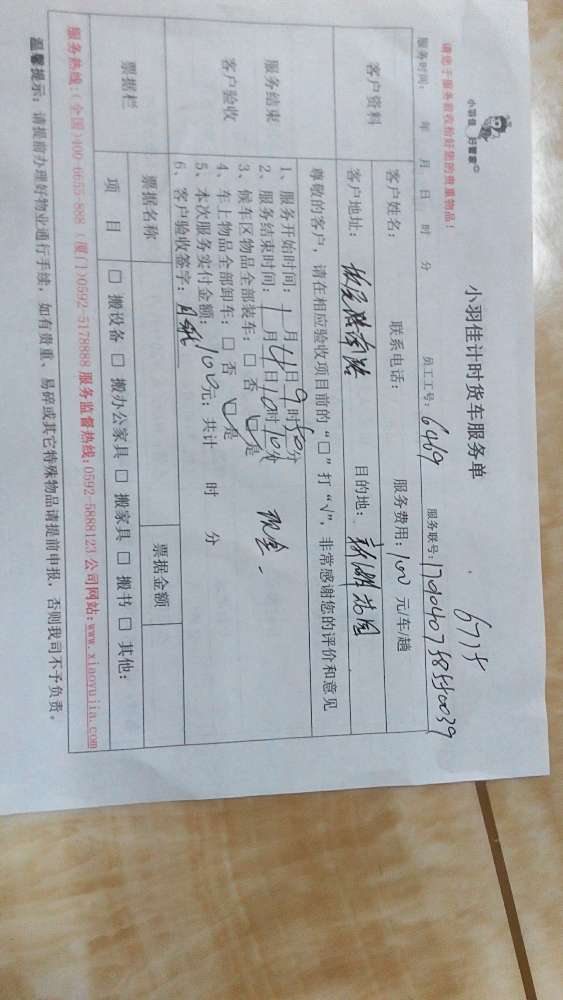 小羽佳 好管家
小羽佳计时货车服务单
6715
请您于服务前收检好您的贵重物品!
服务时间: 年 月 日 时 分 员工工号: 6469 服务联号:
客户资料
客户姓名: 联系电话: 服务费用: 100 元/车/趟
客户地址: 目的地:
服务结束
客户验收
尊敬的客户, 请在相应验收项目前的“□”打“√”, 非常感谢您的评价和意见
1、服务开始时间: 1 月 4 日 9 时 50 分
2、服务结束时间: 1 月 4 日 10 时 10 分 现金
3、候车区物品全部装车: □ 否 □ 是
4、车上物品全部卸车: □ 否 □ 是
5、本次服务实付金额: 100 元; 共计 时 分
6、客户验收签字:
票据栏
票据名称 票据金额
项 目 □ 搬设备 □ 搬办公家具 □ 搬家具 □ 搬书 □ 其他:
服务热线:(全国)400-6655-888 (厦门)0592-5178888 服务监督热线:0592-5888123 公司网站:www.xiaoyujia.com
温馨提示: 请提前办理好物业通行手续, 如有贵重、易碎或其它特殊物品请提前申报, 否则我司不予负责。